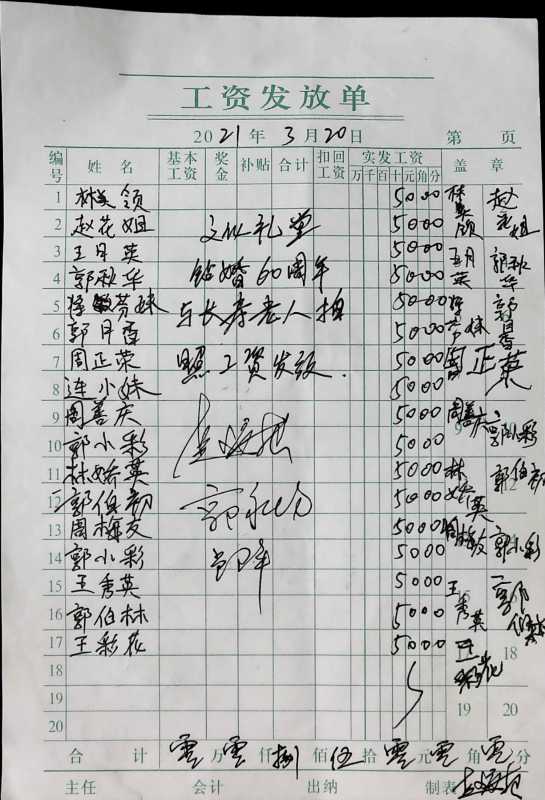 工资发放单
2021年3月20日 第 页
编号 姓名 基本工资 奖金 补贴 合计 扣回工资 实发工资 万千百十元角分 盖章
1 林美领 5000
2 赵花姐 文化礼堂 5000
3 王月英 5000
4 郭秋华 钻婚60周年 5000
5 芬妹 与长寿老人拍 5000
6 郭月香 5000
7 周正荣 照工资发放. 5000 周正荣
8 连小妹 5000
9 周善庆 5000 周善庆
10 郭小彩 5000 郭小彩
11 林娇英 5000 林娇英
12 郭伯初 5000 郭伯初
13 周梅友 5000 周梅友
14 郭小彩 5000 郭小彩
15 王秀英 5000 王秀英
16 郭伯林 5000
17 王彩花 5000
18 18
19 19
20 20
合计 零万零仟捌佰伍拾零元零角零分
主任 会计 出纳 制表